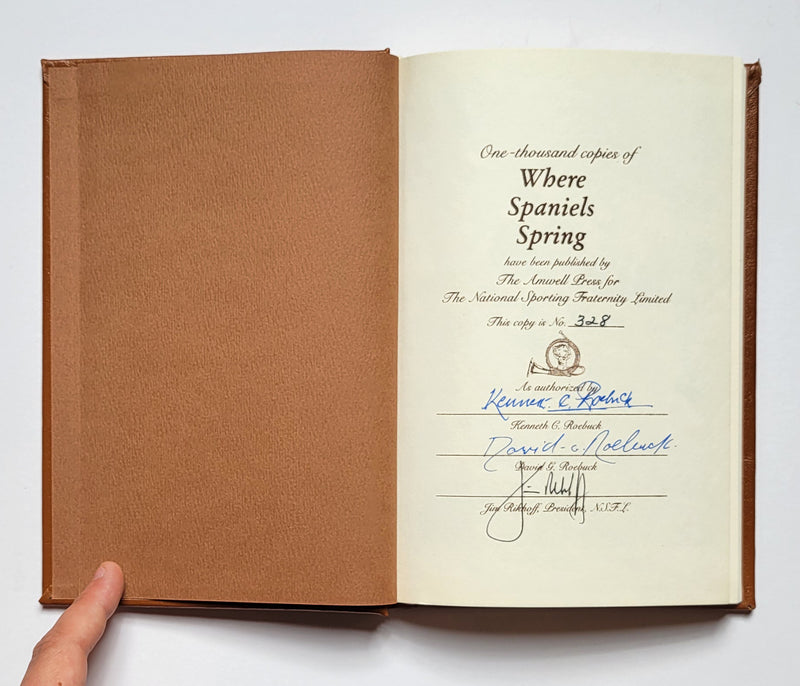 One-thousand copies of
Where
Spaniels
Spring
have been published by
The Amwell Press for
The National Sporting Fraternity Limited
This copy is No. 328
As authorized by
Kenneth C. Roebuck
Kenneth C. Roebuck
David G. Roebuck
David G. Roebuck
Jim Rikhoff
Jim Rikhoff, President, N.S.F.L.